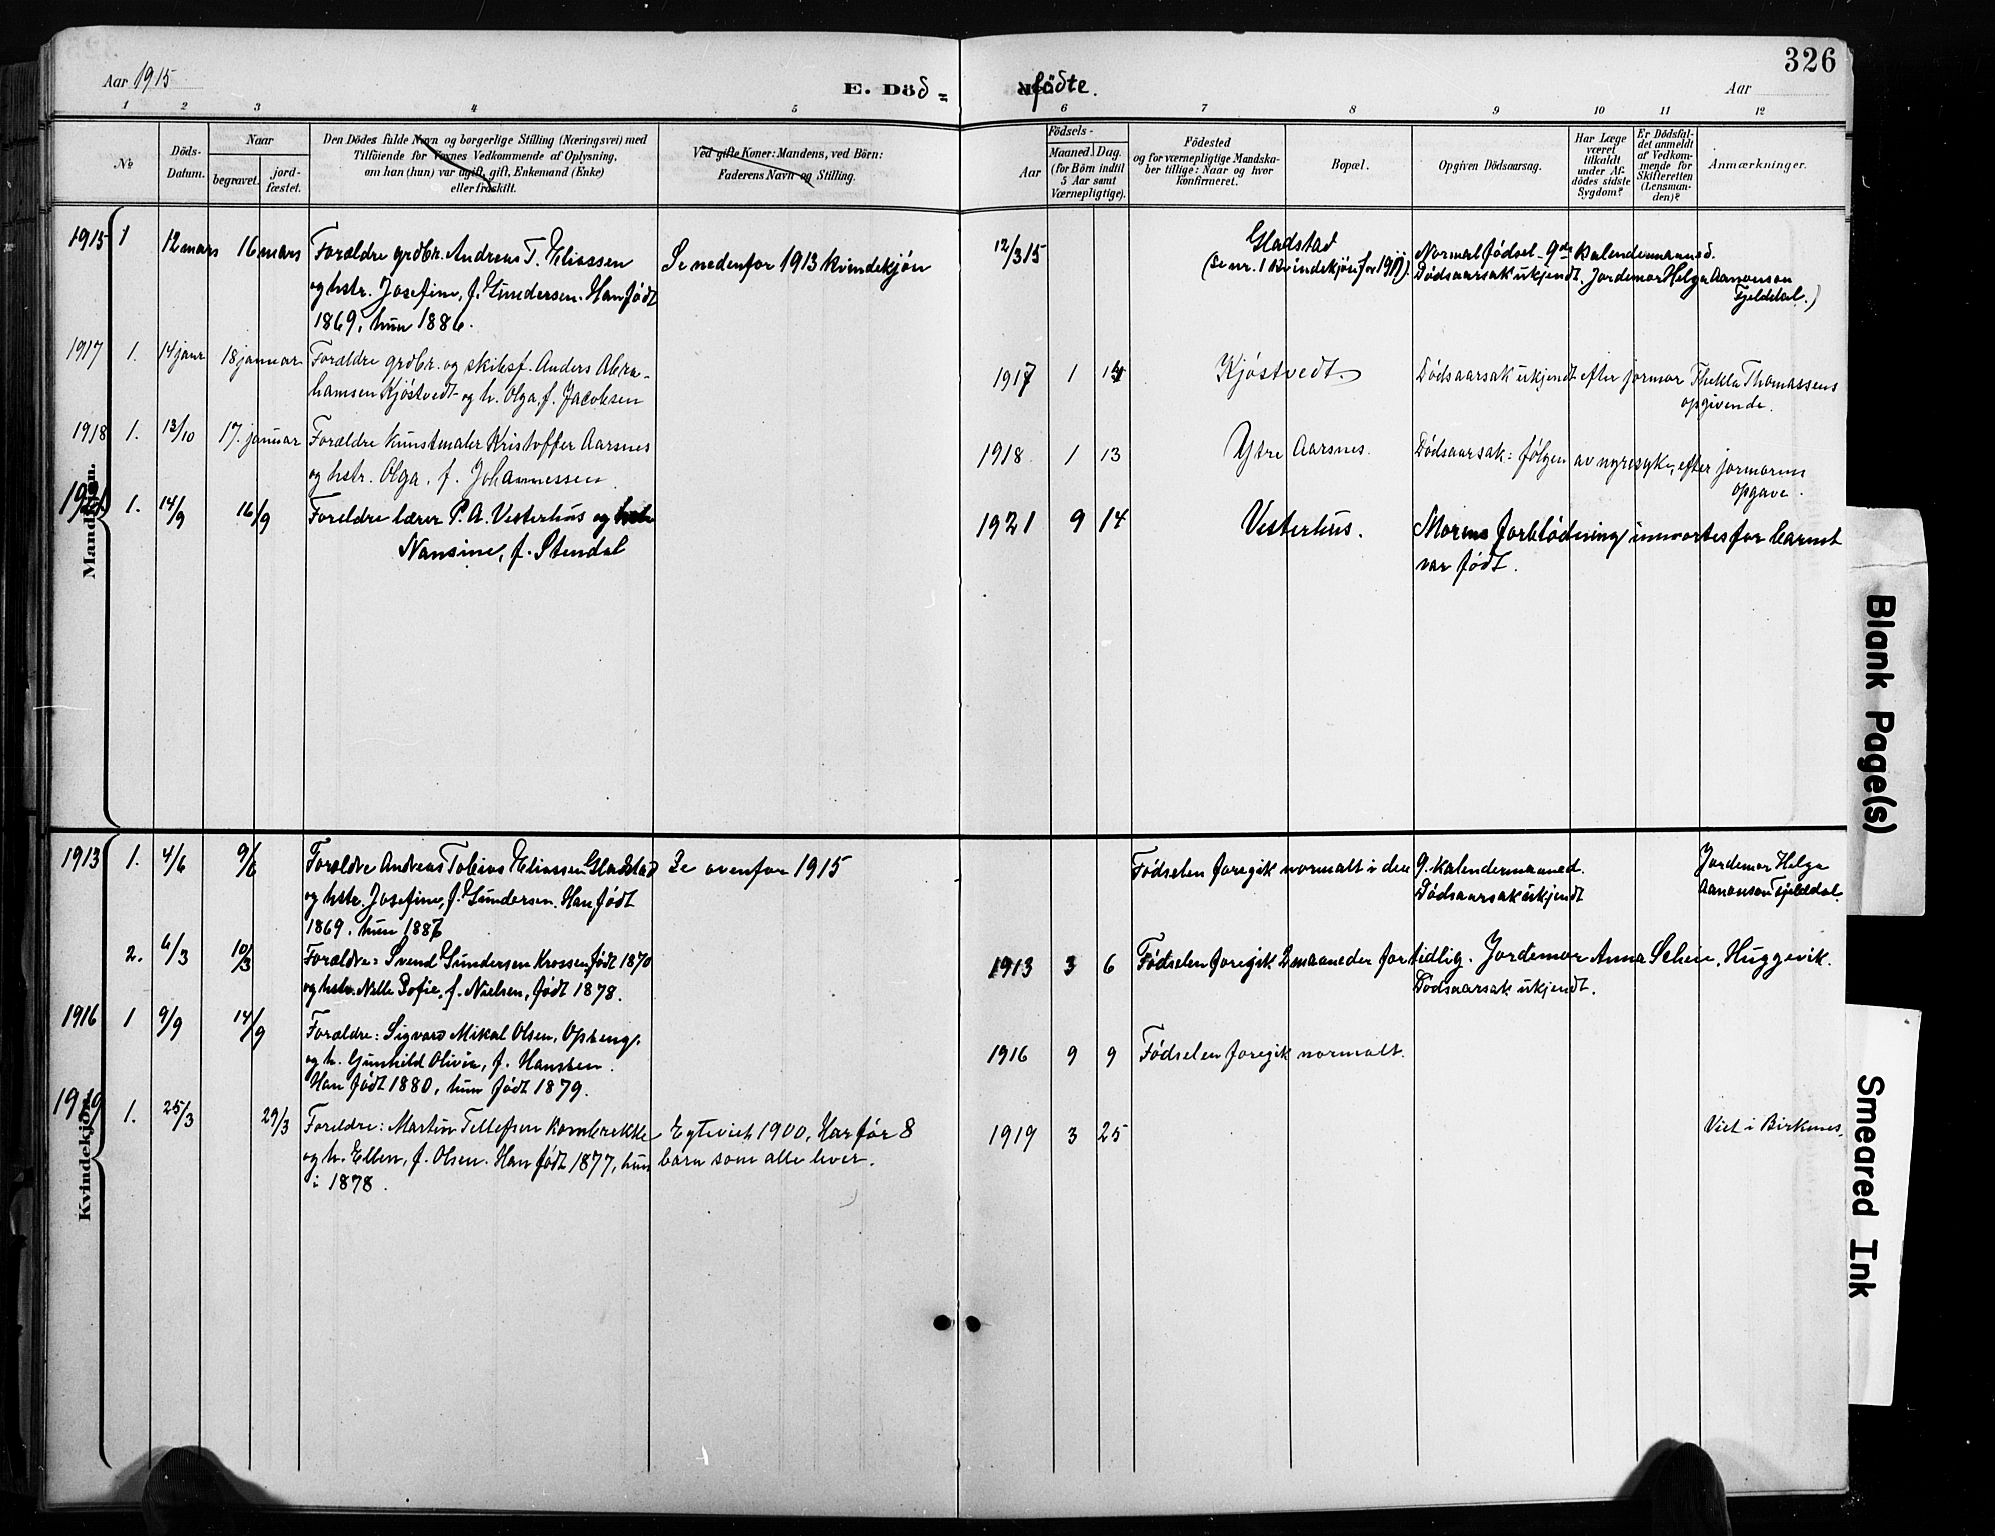 326
Aar 1915
E. Død=
fødte.
Aar
1 2 3 4 5 6 7 8 9 10 11 12
No
Döds-Datum.
Naar
begravet.
jord-fæstet.
Den Dödes fulde Navn og borgerlige Stilling (Næringsvei) med
Tilföiende for Voxnes Vedkommende af Oplysning,
om han (hun) var ugift, gift, Enkemand (Enke)
eller fraskilt.
Ved gifte Koner: Mandens, ved Börn:
Faderens Navn og Stilling.
Födsels-
Aar
Maaned.
Dag.
(for Börn indtil
5 Aar samt
Værnepligtige).
Födested
og for værnepligtige Mandska-
ber tillige: Naar og hvor
konfirmeret.
Bopæl.
Opgiven Dödsaarsag.
Har Læge
været
tilkaldt
under Af-
dödes sidste
Sygdom?
Er Dödsfal-
det anmeldt
af Vedkom-
mende for
Skifteretten
(Lensman-
den)?
Anmærkninger.
Mandkjön.
1915 1 12 mars 16 mars Forældre grdbr. Andreas T. Eliassen
og hstr. Josefine, f. Gundersen. Han født
1869, hun 1886.
Se nedenfor 1913 kvindekjøn
12/3 15
Gladstad
(Se nr. 1 kvindekjøn for
Normal fødsel - 9de kalendermaaned.
Dødsaarsak ukjendt. Jordemor Helga Aanonsen
Fjeldal.)
1917 1. 14 janr 18 januar Forældre grdbr. og skibsf. Anders Abra-
hamsen Kjøstvedt og h. Olga, f. Jacobsen
1917 1 14 Kjøstvedt. Dødsaarsak ukjendt efter jormor Thekla Thomassens
opgivende.
1918 1. 13/10 17. januar Forældre kunstmaler Kristoffer Aarsnes
og hstr. Olga, f. Johannessen.
1918 1 13 Ytre Aarsnes. Dødsaarsak: følgen av nyresyke, efter jormorens
opgave.
1921 1. 14/9 16/9 Foreldre lærer P. A. Vesterhus og hstr
Nansine, f. Stendal
1921 9 14 Vesterhus. Morens forblødning innvortes før barnet
var født.
Kvindekjön.
1913 1. 4/6 9/6 Forældre Andreas Tobias Eliassen Gladstad
og hstr. Josefine, f. Gundersen. Han født
1869, hun 1886
Se ovenfor 1915
Fødselen foregik normalt i den 9. kalendermaaned.
Dødsaarsak ukjendt
Jordemor Helga
Aanonsen Fjeldal.
2. 6/3 10/3 Forældre: Svend Gundersen Krossen, født 1870
og hstr. Nelle Sofie, f. Nielsen, født 1878.
1913 3 6 Fødselen foregik 2 maaneder for tidlig. Jordemor Anna Scheie, Huggevik.
Dødsaarsak ukjendt.
1916 1 9/9 14/9 Forældre: Sigvard Mikal Olsen,
og h. Gunhild Olivie, f. Hanssen.
Han født 1880, hun født 1879.
1916 9 9 Fødselen foregik normalt.
1919 1. 25/3 29/3 Foreldre: Martin Tellefsen
og h. Ellen, f. Olsen. Han født 1877, hun
i 1878.
Egteviet 1900. Har før 8
barn som alle lever.
1919 3 25 Viet i Birkenes.
Blank Page(s)
Smeared Ink